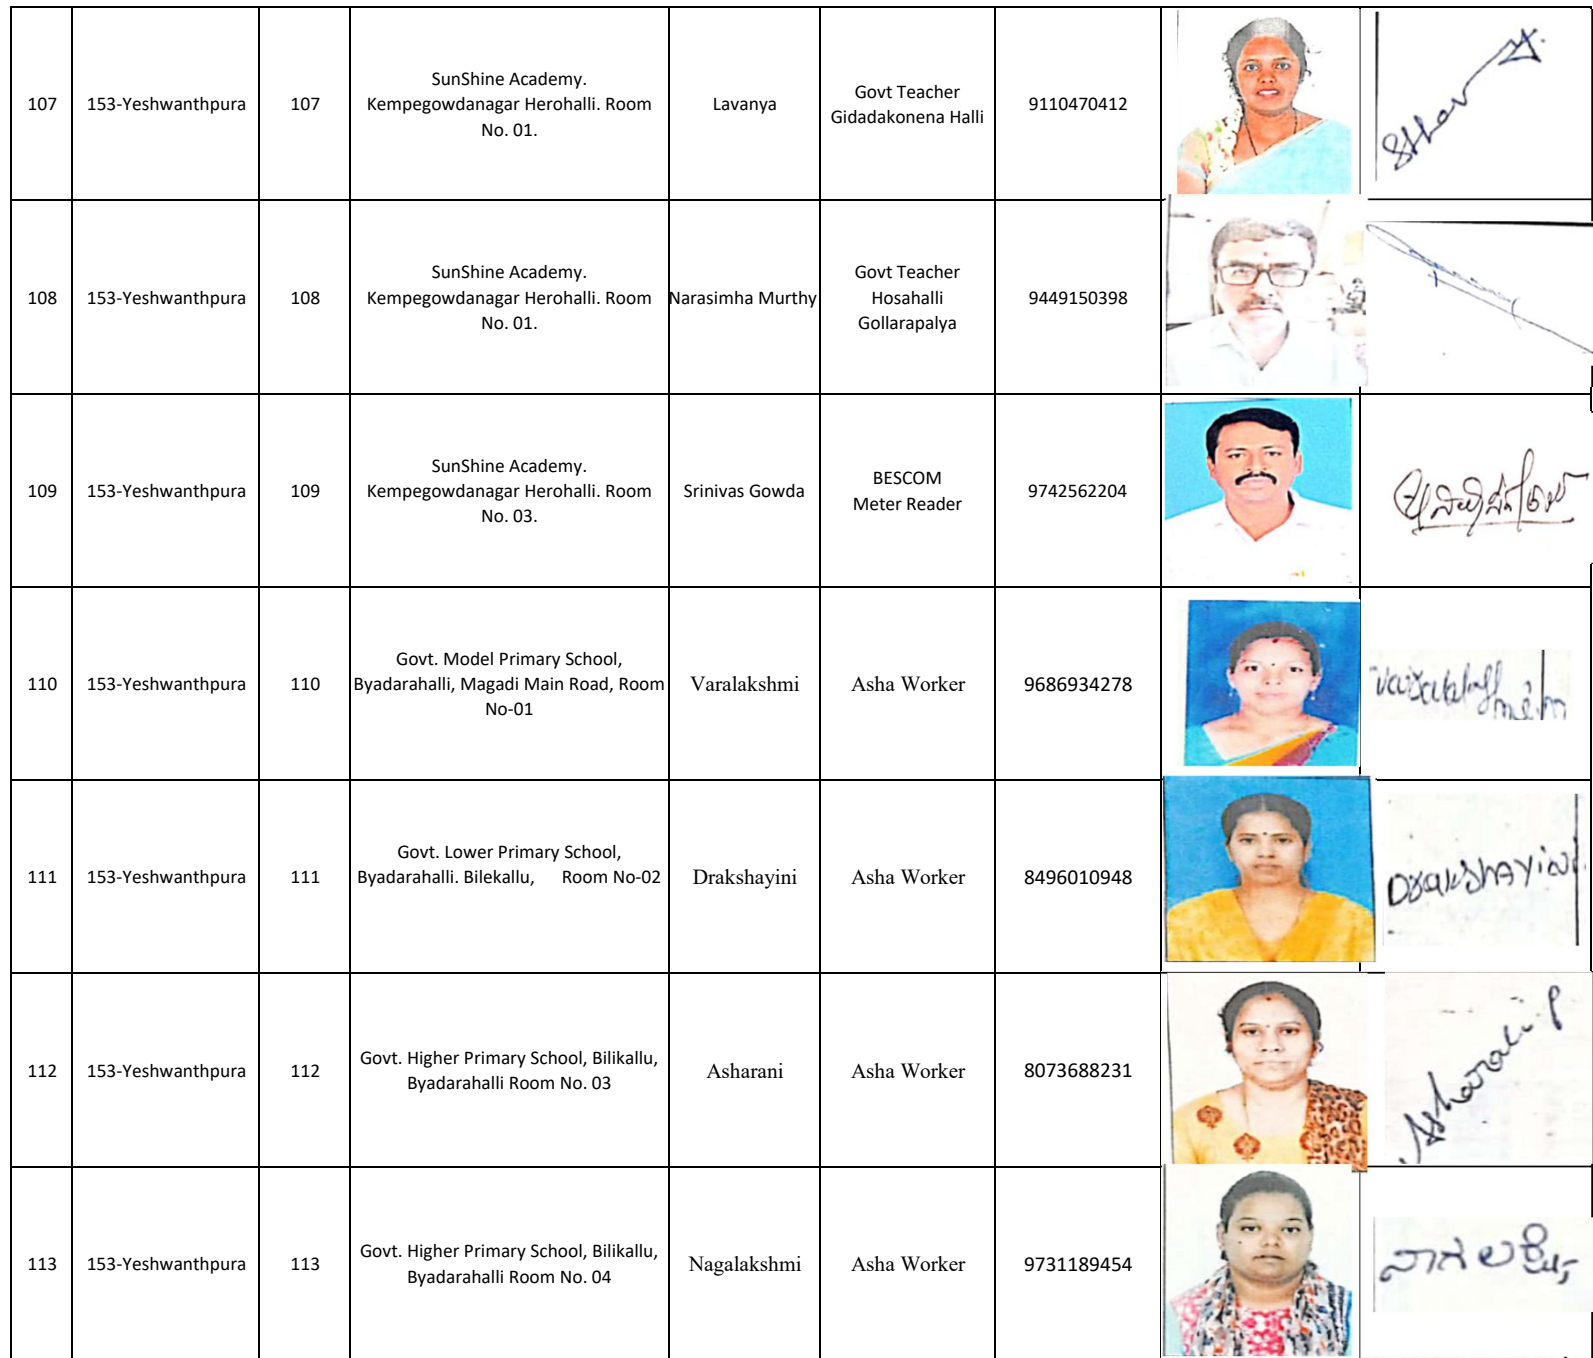 107 153-Yeshwanthpura 107 SunShine Academy. Kempegowdanagar Herohalli. Room No. 01. Lavanya Govt Teacher Gidadakonena Halli 9110470412
108 153-Yeshwanthpura 108 SunShine Academy. Kempegowdanagar Herohalli. Room No. 01. Narasimha Murthy Govt Teacher Hosahalli Gollarapalya 9449150398
109 153-Yeshwanthpura 109 SunShine Academy. Kempegowdanagar Herohalli. Room No. 03. Srinivas Gowda BESCOM Meter Reader 9742562204
110 153-Yeshwanthpura 110 Govt. Model Primary School, Byadarahalli, Magadi Main Road, Room No-01 Varalakshmi Asha Worker 9686934278
111 153-Yeshwanthpura 111 Govt. Lower Primary School, Byadarahalli. Bilekallu, Room No-02 Drakshayini Asha Worker 8496010948 Drakshayini
112 153-Yeshwanthpura 112 Govt. Higher Primary School, Bilikallu, Byadarahalli Room No. 03 Asharani Asha Worker 8073688231
113 153-Yeshwanthpura 113 Govt. Higher Primary School, Bilikallu, Byadarahalli Room No. 04 Nagalakshmi Asha Worker 9731189454 ನಾಗಲಕ್ಷ್ಮಿ